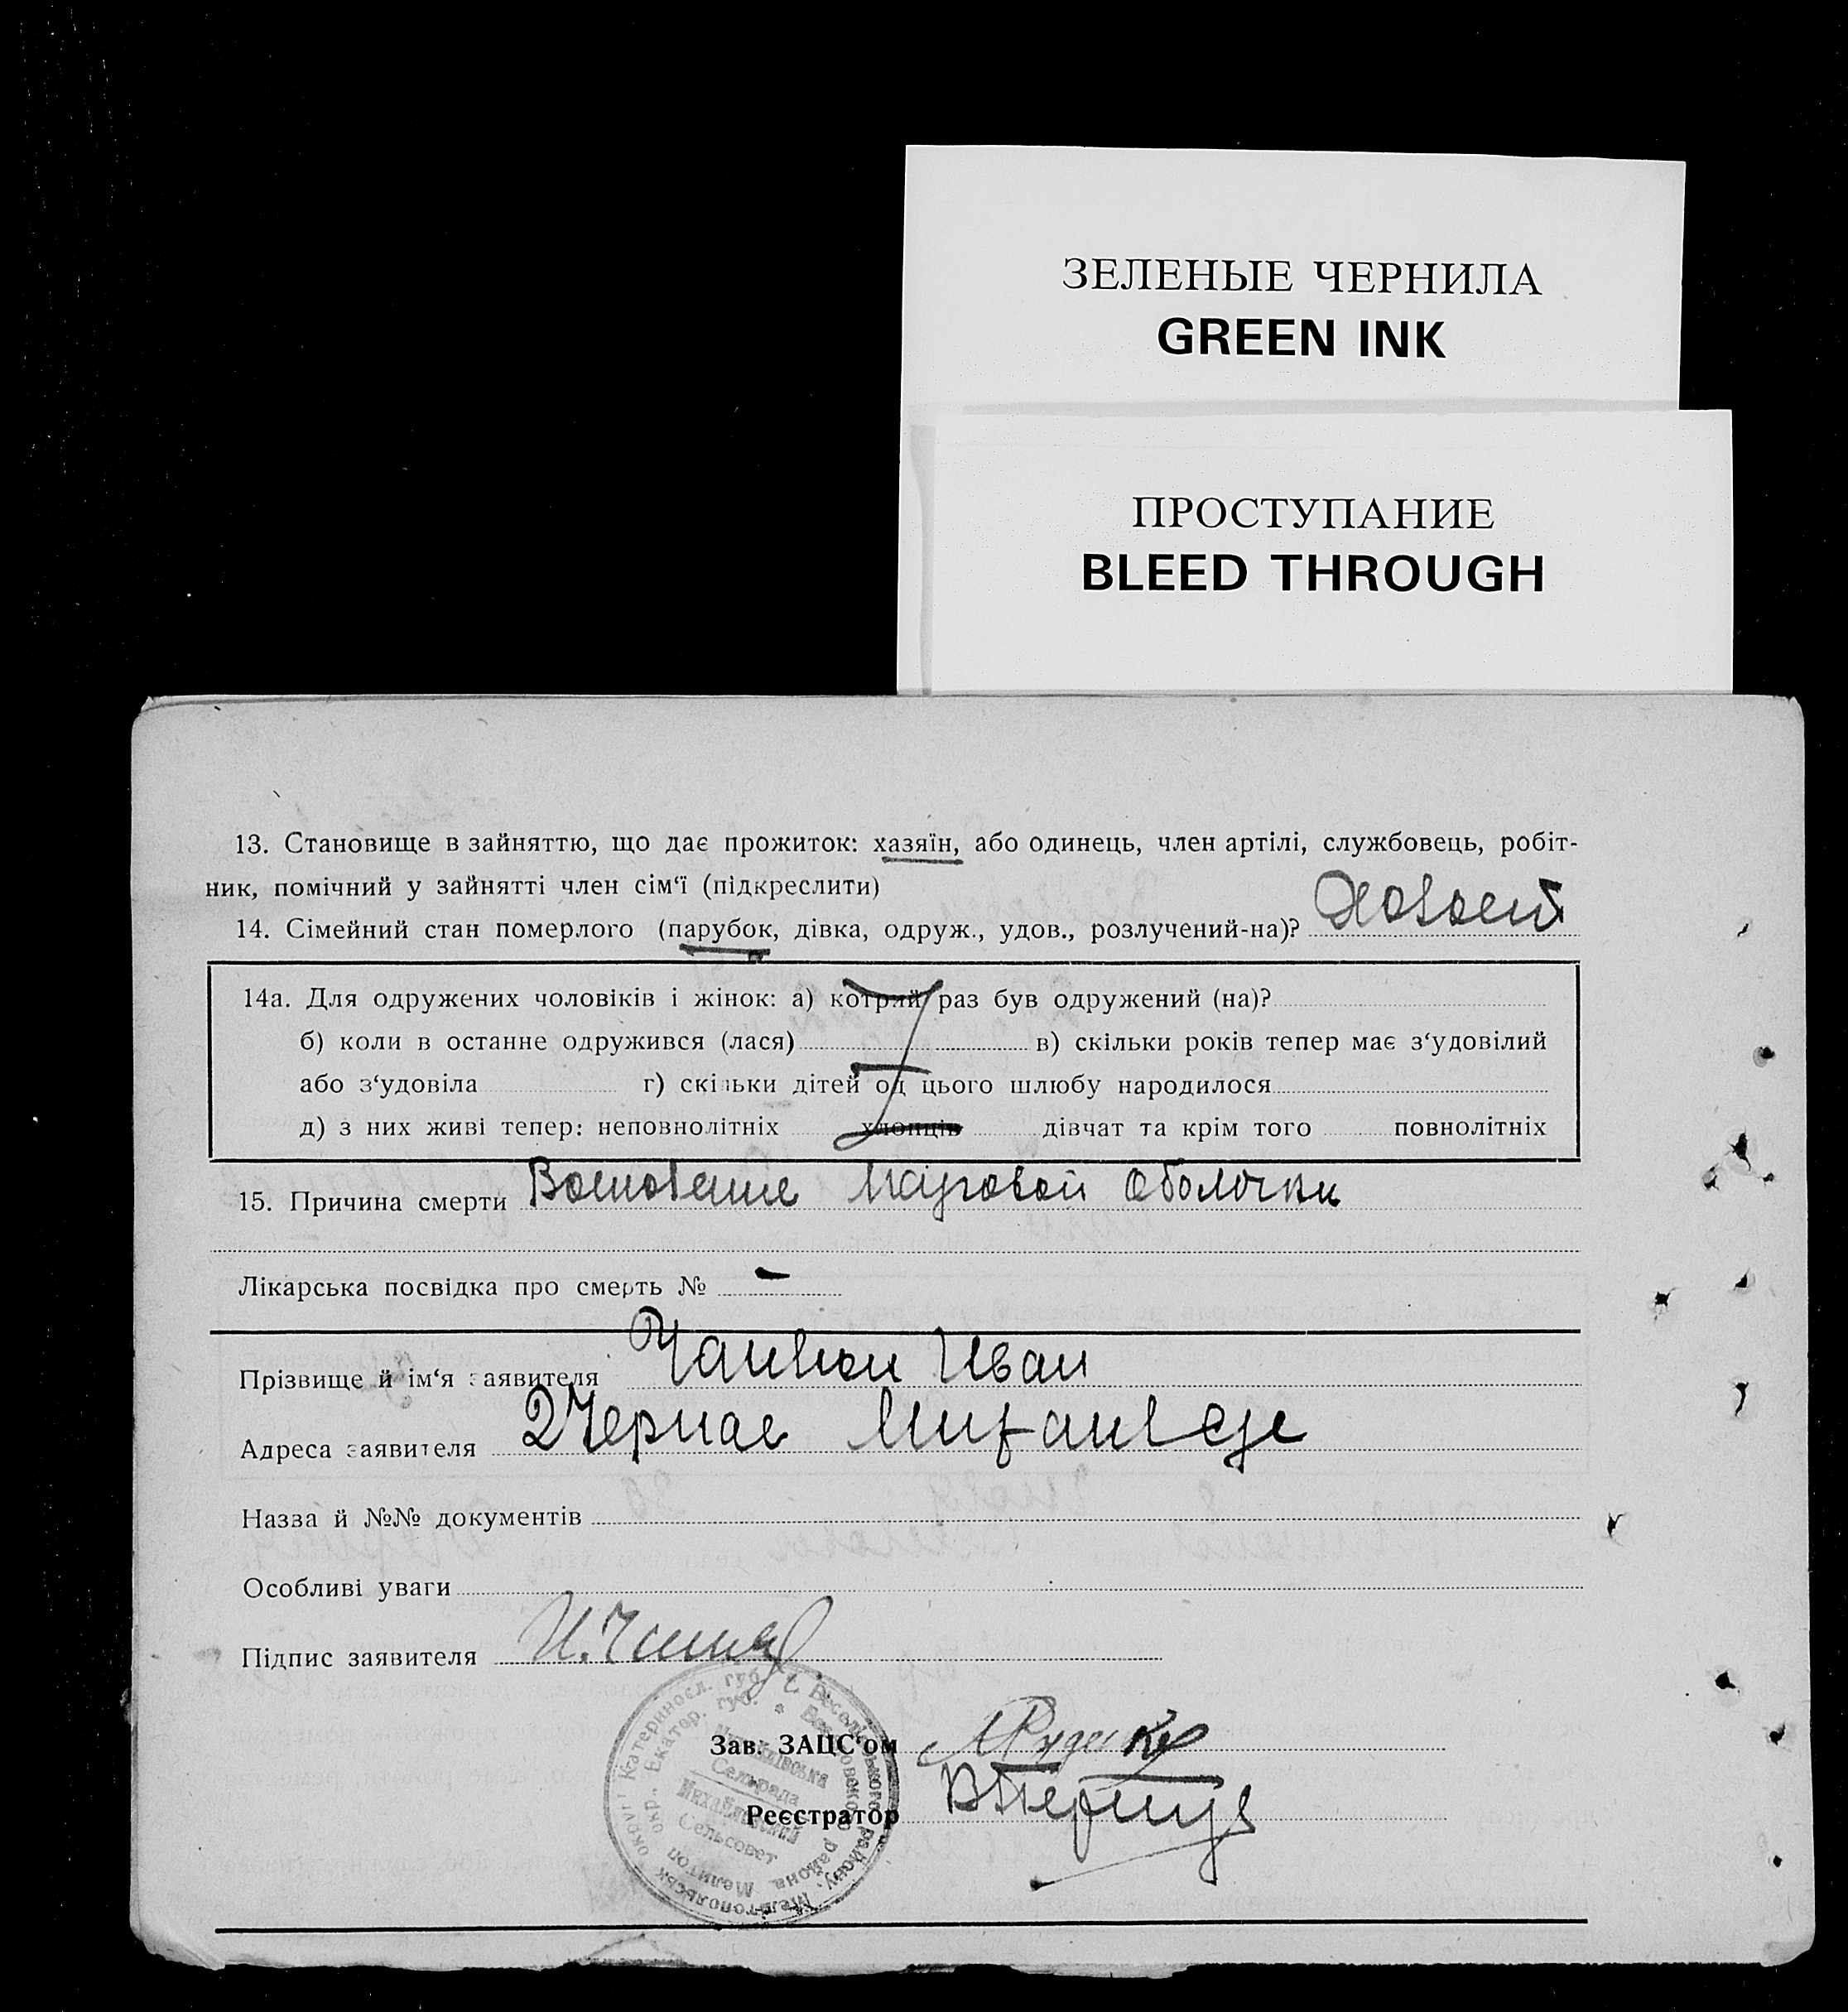 ЗЕЛЕНЫЕ ЧЕРНИЛА
GREEN INK
ПРОСТУПАНИЕ
BLEED THROUGH
13. Становище в зайняттю, що дає прожиток: хазяїн, або одинець, член артілі, службовець, робіт-
ник, помічний у зайнятті член сім‘ї (підкреслити)
14. Сімейний стан померлого (парубок, дівка, одруж., удов., розлучений-на)?
14а. Для одружених чоловіків і жінок: а) котрий раз був одружений (на)?
б) коли в останне одружився (лася) в) скільки років тепер має з‘удовілий
або з‘удовіла г) скільки дітей од цього шлюбу народилося
д) з них живі тепер: неповнолітніх хлопців дівчат та крім того повнолітніх
15. Причина смерти оболочки
Лікарська посвідка про смерть № -
Прізвище й ім‘я заявителя Иван
Адреса заявителя
Назва й №№ документів
Особливі уваги
Підпис заявителя
Зав. ЗАЦС‘ом
Реєстратор
Катериносл. губ. Веселівського району, Мелітопольськ округ
Екатер. губ. района Мелитоп окр.
Михайлівська
Сельрада
Михайловский
Сельсовет